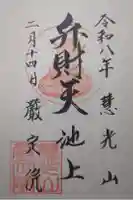 令和八年 慧光山
弁財天 池上
二月十四日 嚴定院